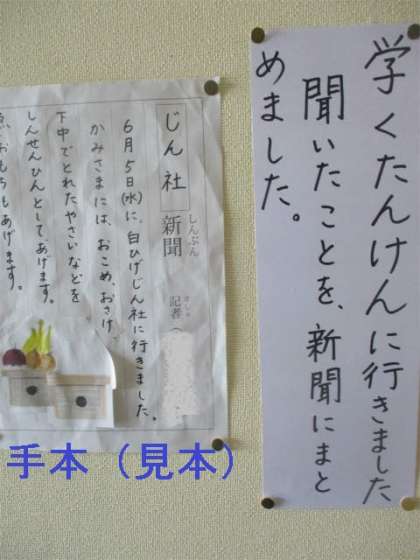 学くたんけんに行きました
聞いたことを、新聞にまと
めました。
じん社
新聞
しんぶん
記者
きしゃ
6月5日(水)に、白ひげじん社に行きました。
かみさまには、おこめ、おさけ、
下中でとれたやさいなどを
しんせんひんとして、あげます。
おもちもあげます。
手本（見本）